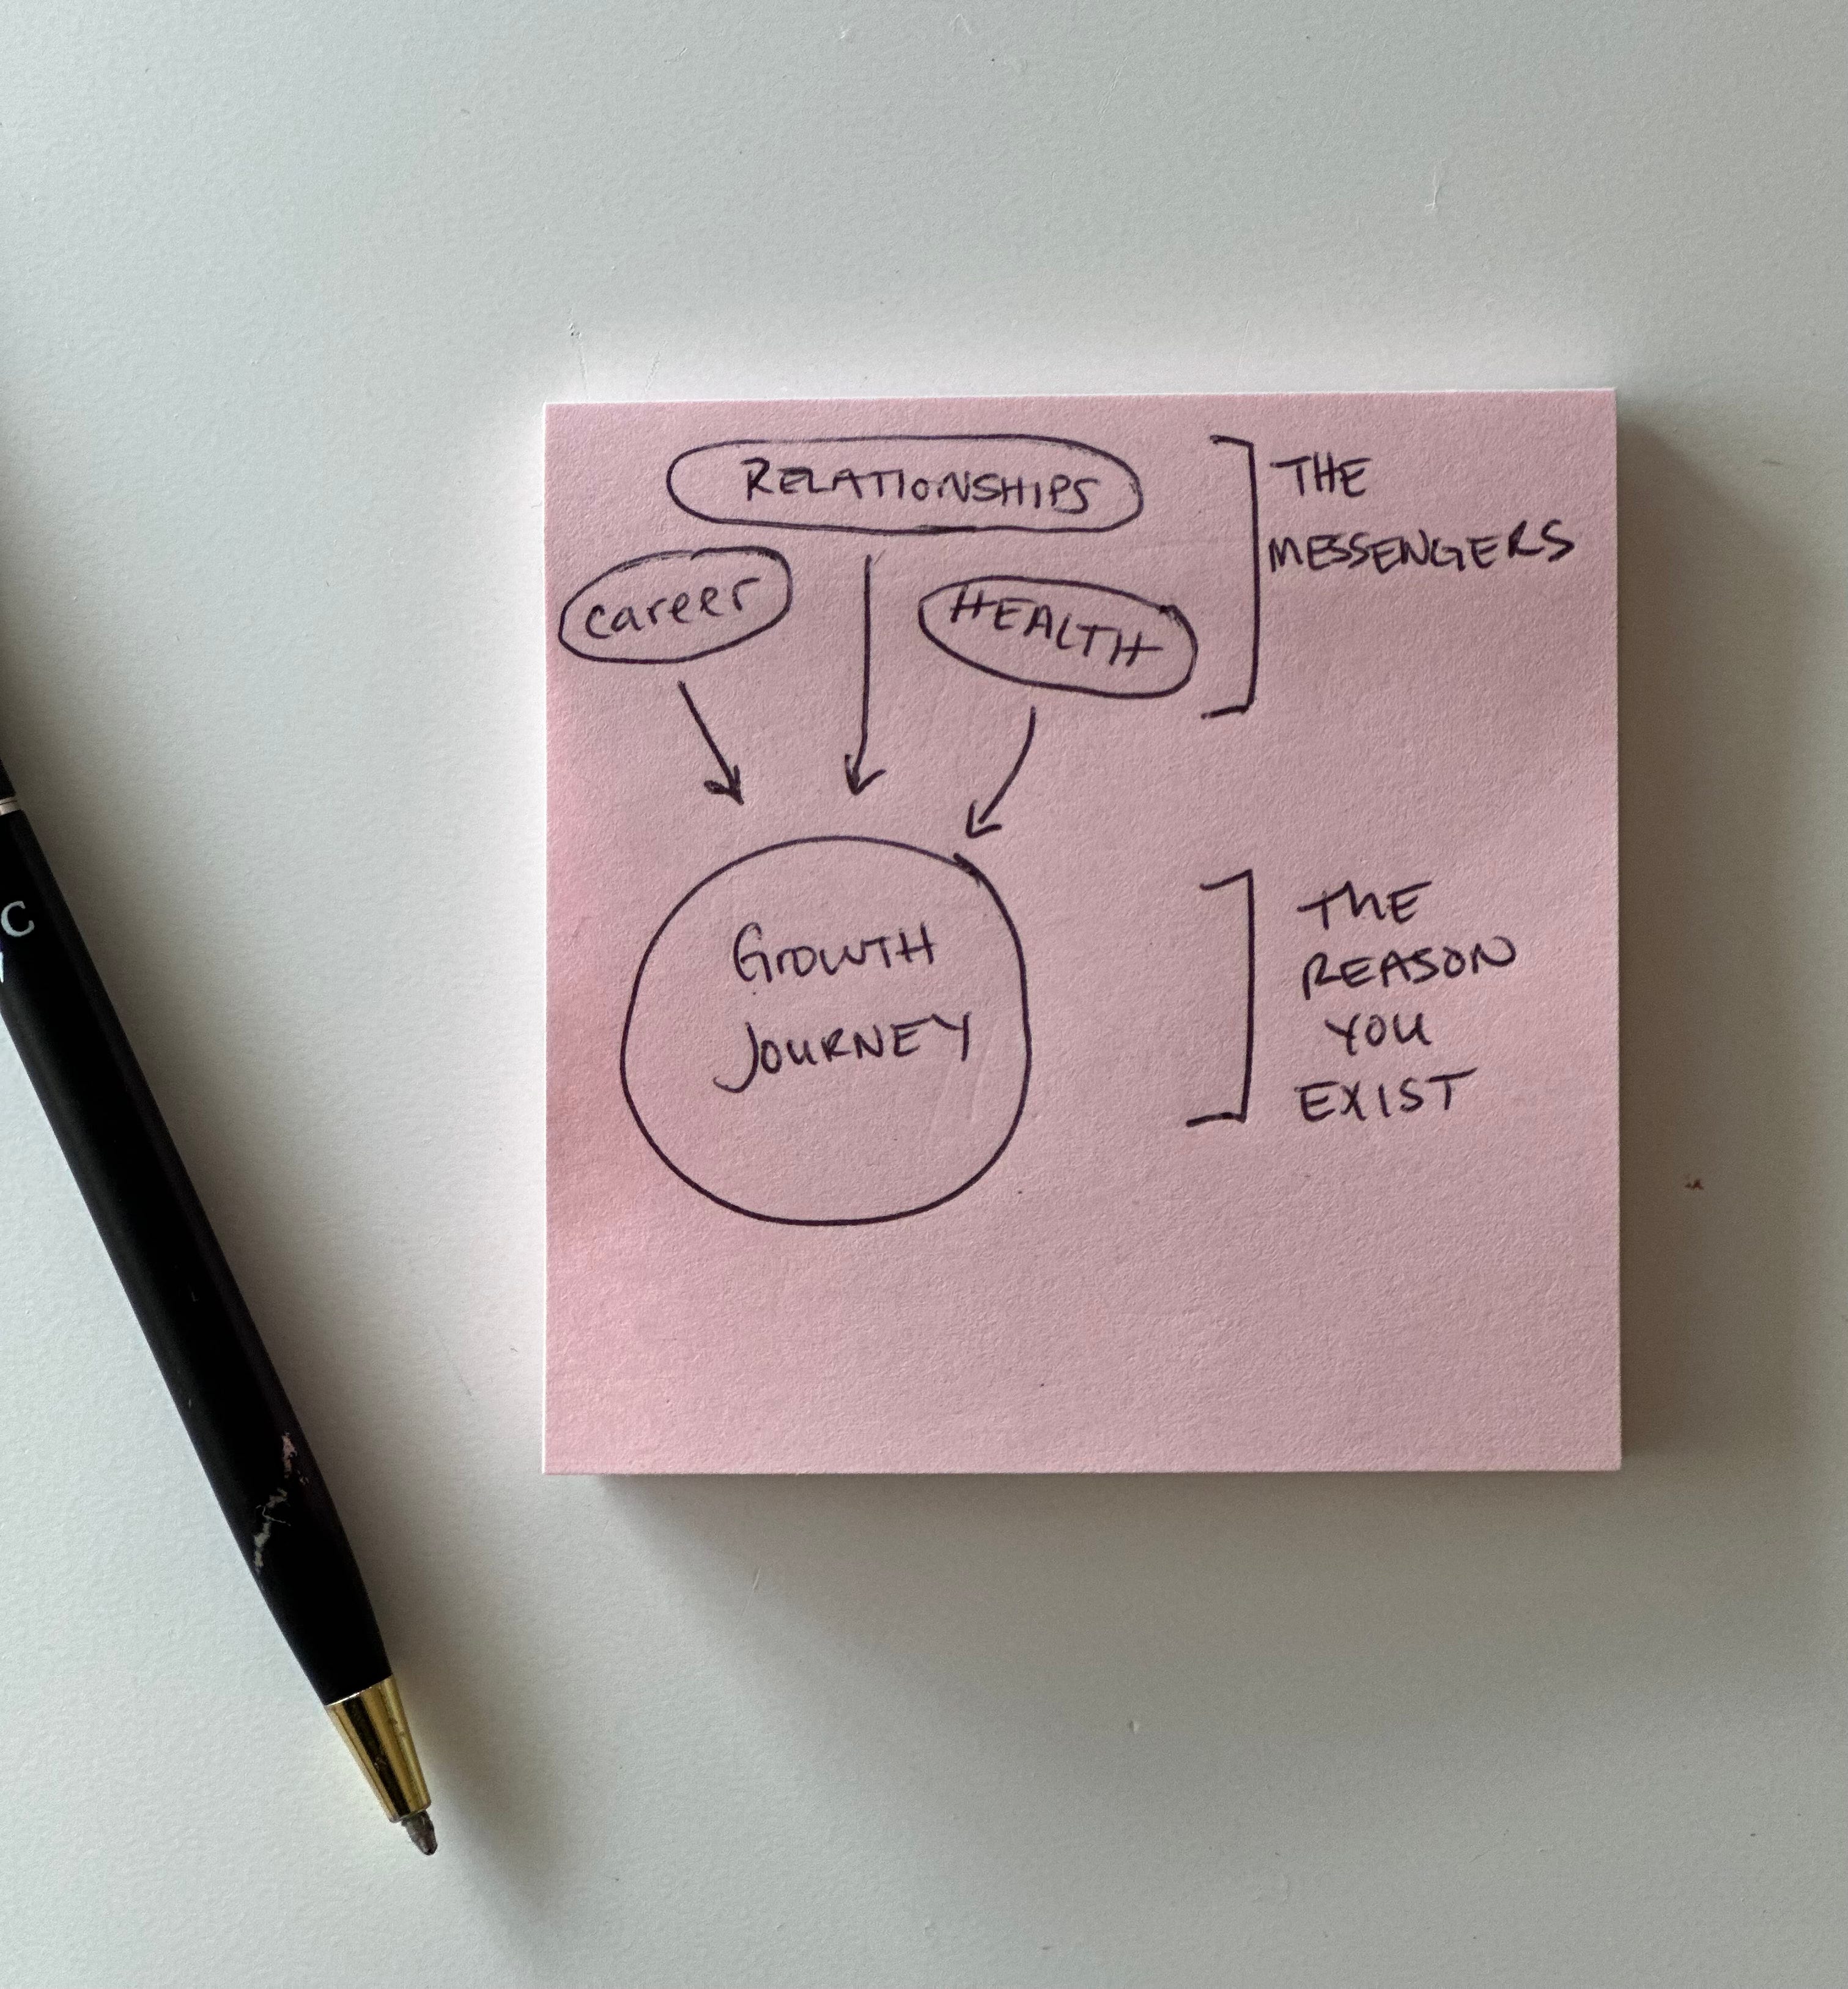 RELATIONSHIPS
career
HEALTH
THE
MESSENGERS
GROWTH
JOURNEY
THE
REASON
YOU
EXIST
C